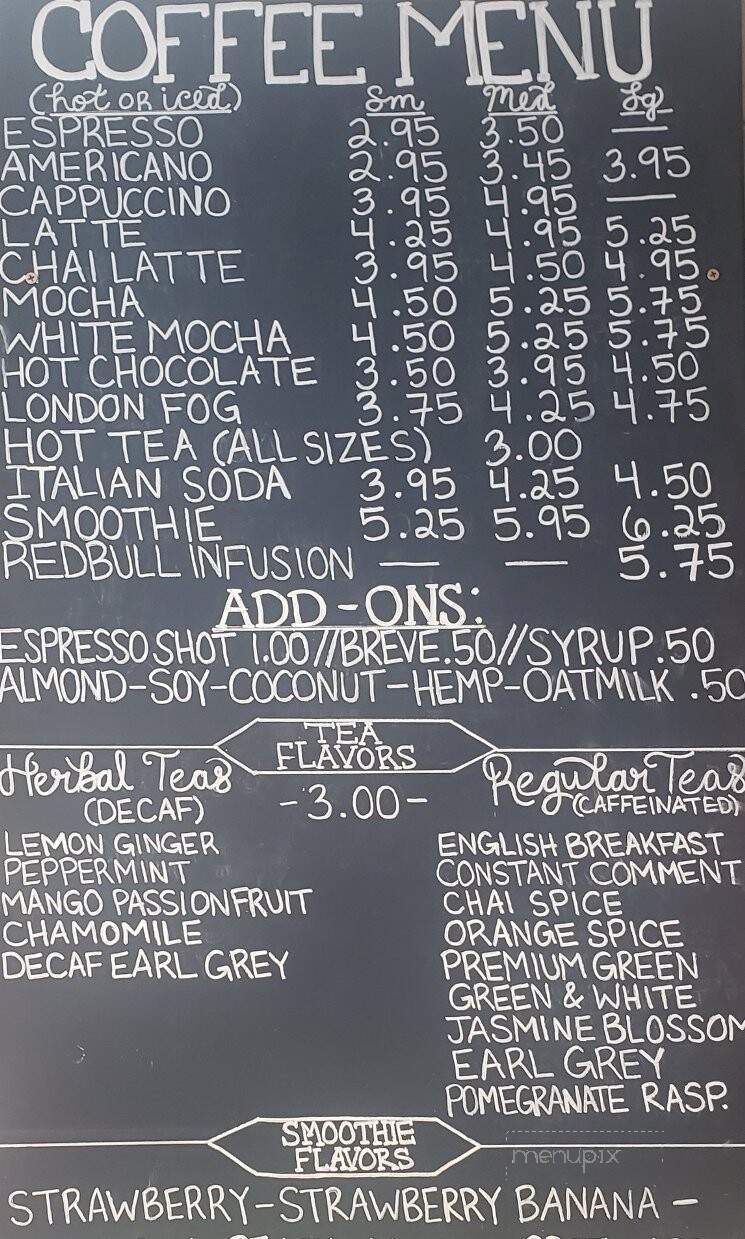 COFFEE MENU
(hot OR iced) Sm Med Lg
ESPRESSO 2.95 3.50 —
AMERICANO 2.95 3.45 3.95
CAPPUCCINO 3.95 4.95 —
LATTE 4.25 4.95 5.25
CHAI LATTE 3.95 4.50 4.95
MOCHA 4.50 5.25 5.75
WHITE MOCHA 4.50 5.25 5.75
HOT CHOCOLATE 3.50 3.95 4.50
LONDON FOG 3.75 4.25 4.75
HOT TEA (ALL SIZES) 3.00
ITALIAN SODA 3.95 4.25 4.50
SMOOTHIE 5.25 5.95 6.25
REDBULL INFUSION — — 5.75
ADD-ONS:
ESPRESSO SHOT 1.00//BREVE .50//SYRUP .50
ALMOND-SOY-COCONUT-HEMP-OATMILK .50
TEA
FLAVORS
Herbal Teas
(DECAF)
-3.00-
Regular Teas
(CAFFEINATED)
LEMON GINGER
PEPPERMINT
MANGO PASSIONFRUIT
CHAMOMILE
DECAF EARL GREY
ENGLISH BREAKFAST
CONSTANT COMMENT
CHAI SPICE
ORANGE SPICE
PREMIUM GREEN
GREEN & WHITE
JASMINE BLOSSOM
EARL GREY
POMEGRANATE RASP.
SMOOTHIE
FLAVORS
menupix
STRAWBERRY-STRAWBERRY BANANA -